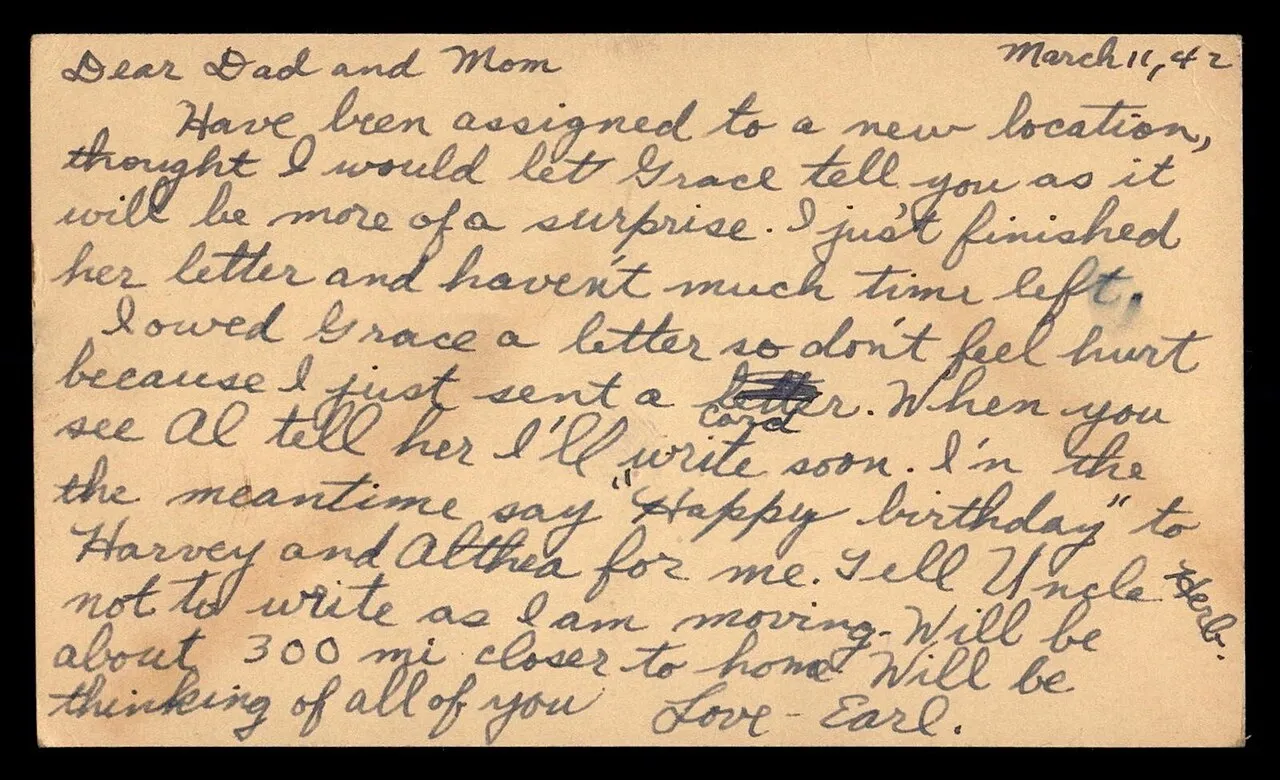 Dear Dad and Mom March 11, 42
Have been assigned to a new location,
thought I would let Grace tell you as it
will be more of a surprise. I just finished
her letter and haven't much time left.
I owed Grace a letter so don't feel hurt
because I just sent a letter. When you
card
see Al tell her I'll write soon. I'n the
the meantime say "Happy birthday" to
Harvey and Althea for me. Tell Uncle Herb.
not to write as I am moving. Will be
about 300 mi closer to home Will be
thinking of all of you Love - Earl.